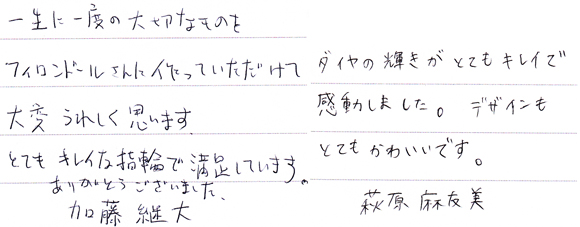 一生に一度の大切なものを
フィロンドールさんに作っていただけて
大変うれしく思います
とてもキレイな指輪で満足しています。
ありがとうございました。
加藤 継大
ダイヤの輝きがとてもキレイで
感動しました。デザインも
とてもかわいいです。
萩原 麻友美